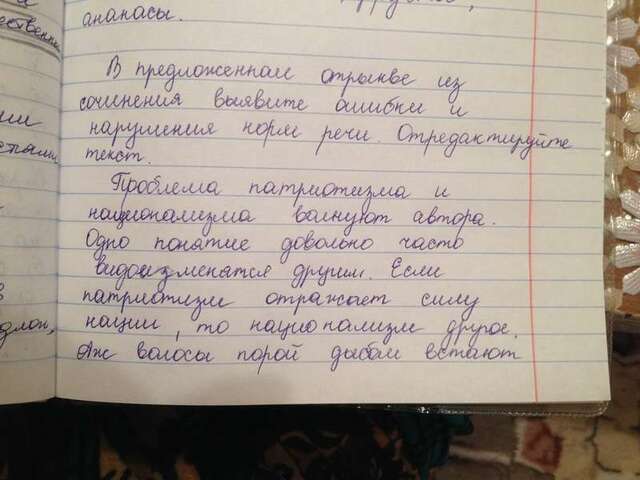 ественни
ананасы.
В предложенном отрывке из
сочинения выявите ошибки и
нарушения норм речи. Отредактируйте
текст.
Проблема патриотизма и
национализма волнуют автора.
Одно понятие довольно часто
видоизменятся другим. Если
патриотизм отражает силу
нации, то национализм другое.
Аж волосы порой дыбом встают